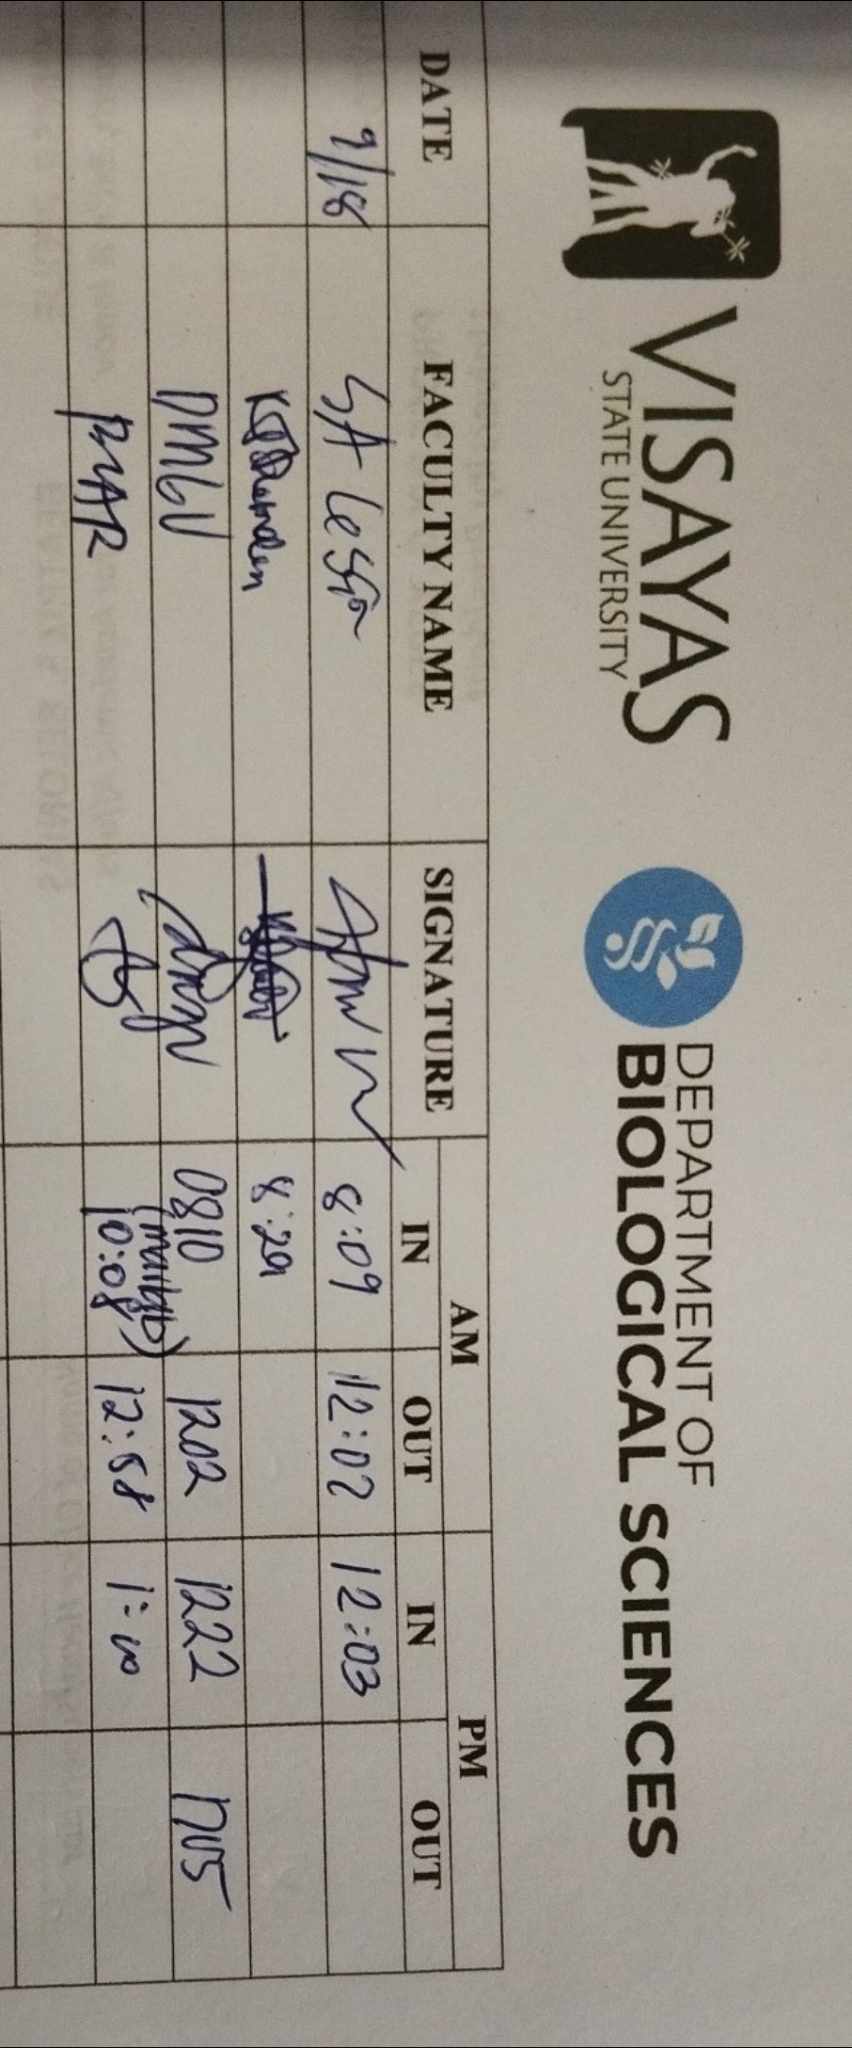 VISAYAS
STATE UNIVERSITY
DEPARTMENT OF
BIOLOGICAL SCIENCES
DATE FACULTY NAME SIGNATURE AM PM
IN OUT IN OUT
9/18 SA 8:09 12:02 12:03
8:29
DMGV 0810 1202 1222 1705
10:08 12:58 1:00